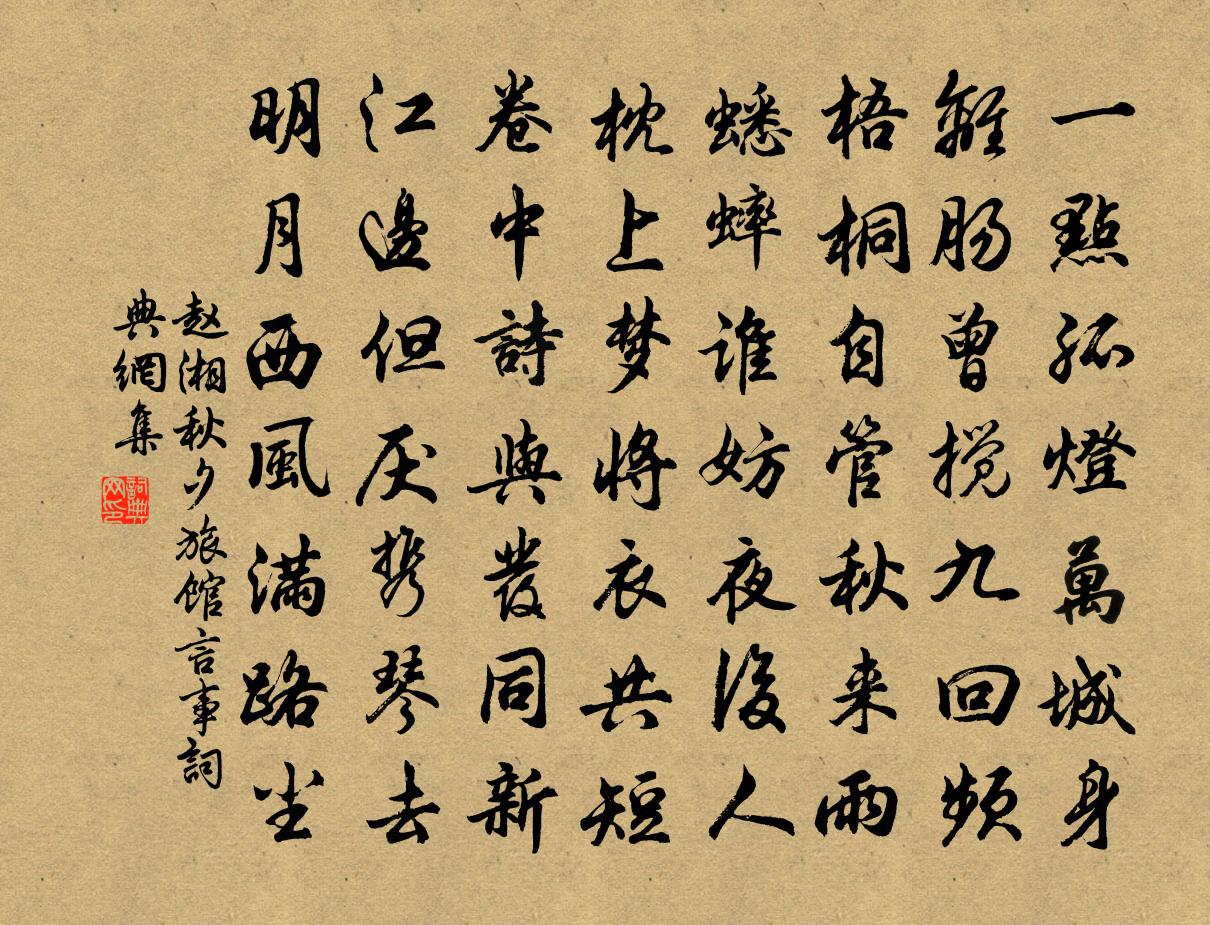 一點孤燈萬城身
離肠曾搅九回頻
梧桐自管秋来雨
蟋蟀誰妨夜後人
枕上梦將衣共短
卷中詩與發同新
江邊但厌携琴去
明月西風滿路尘
赵湘秋夕旅館言事詞
典網集
詞典
网印